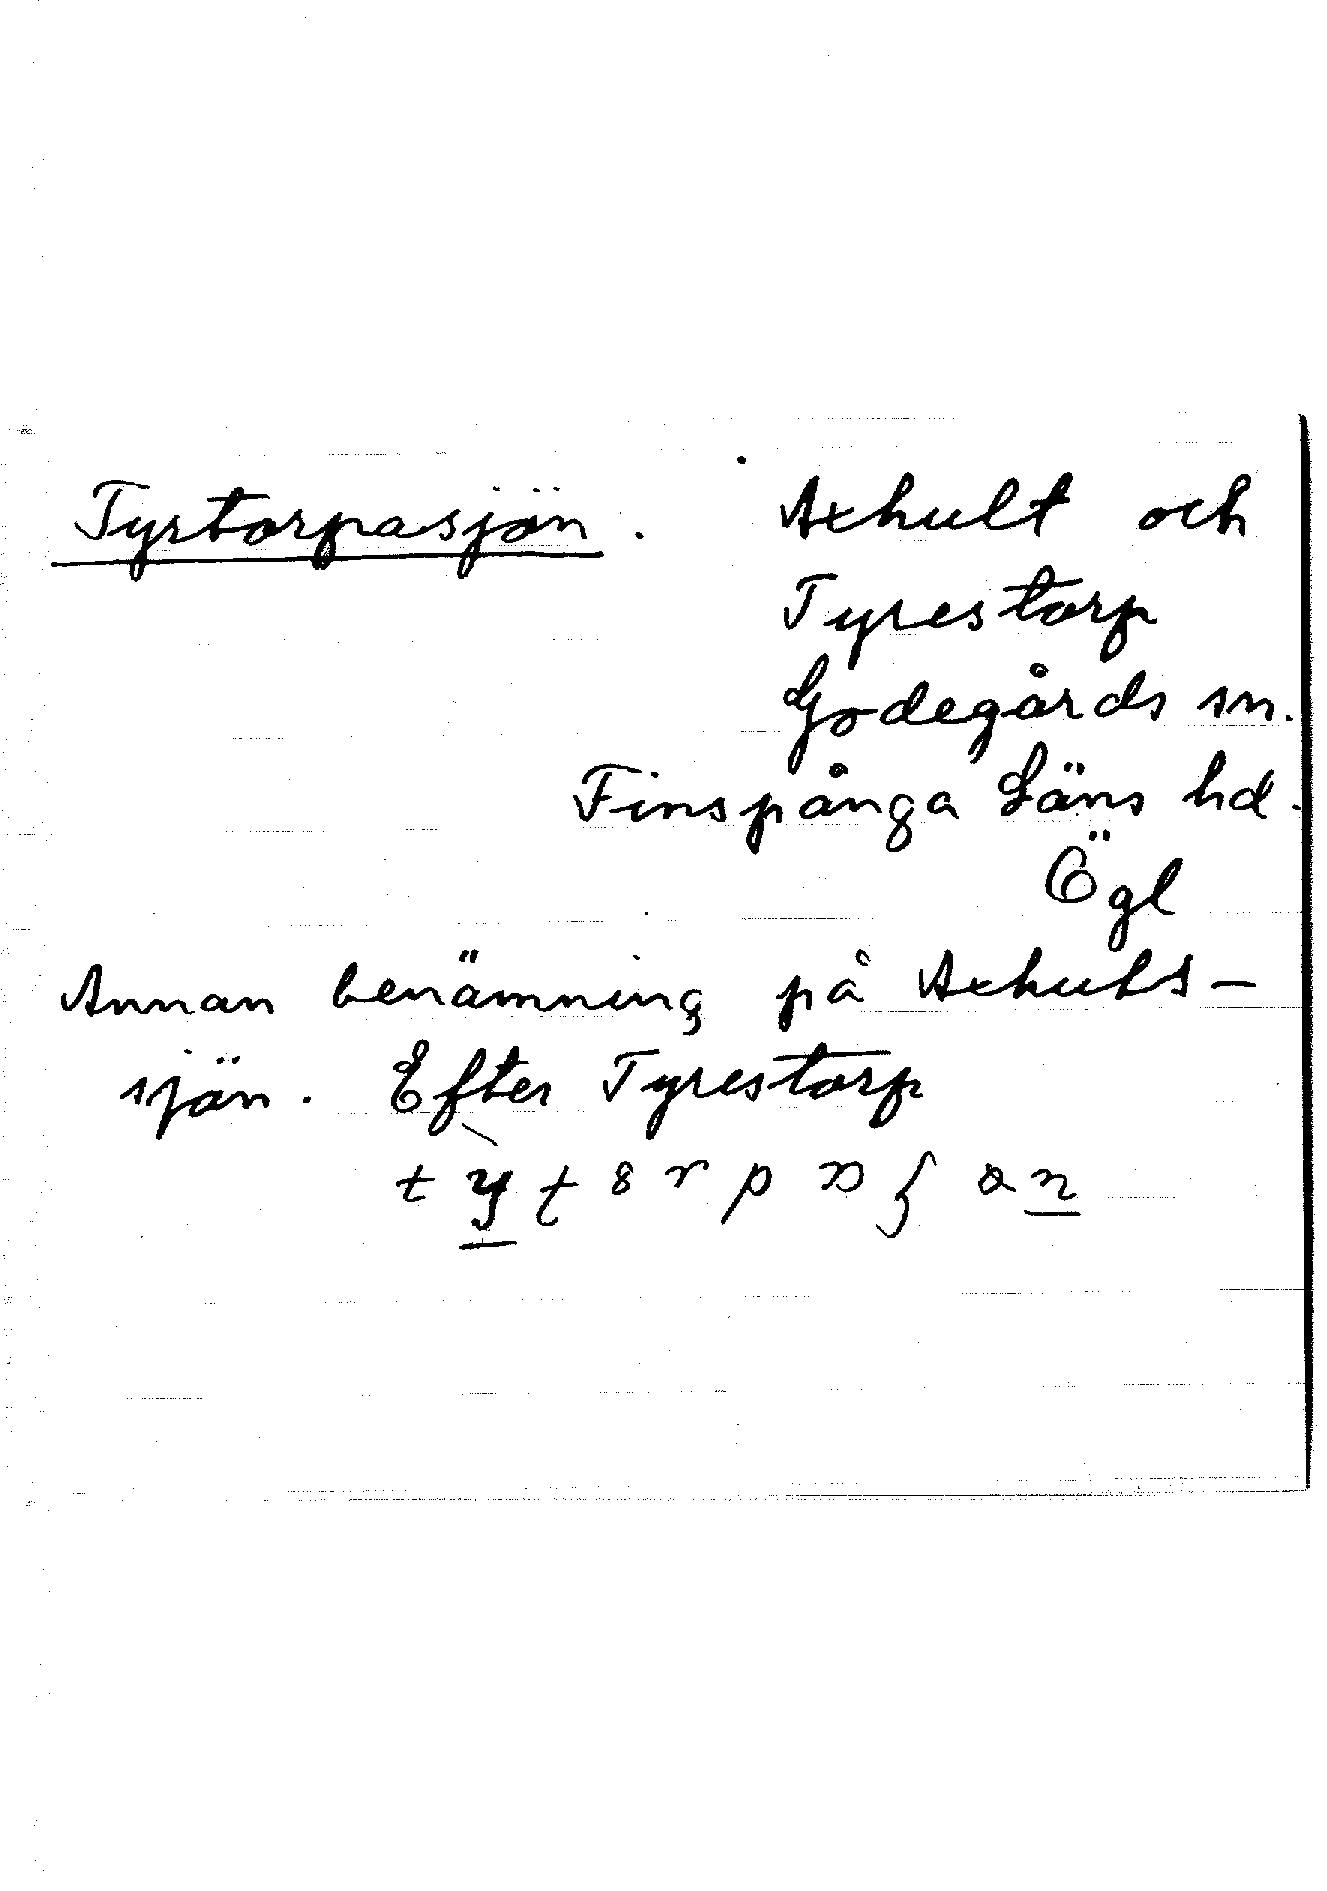 Tyrtorpasjön. Axhult och
Tyrestorp
Godegårds sn.
Finspånga Läns hd.
Ögl
Annan benämning på Axhults-
sjön. Efter Tyrestorp